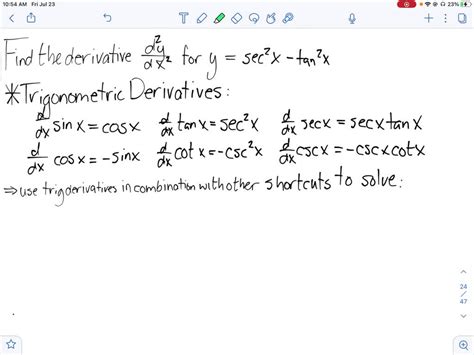 10:54 AM Fri Jul 23
23%
Find the derivative d²y/dx² for y = sec²x - tan²x
*Trigonometric Derivatives:
d/dx sinx = cosx d/dx tanx = sec²x d/dx secx = secx tanx
d/dx cosx = -sinx d/dx cotx = -csc²x d/dx cscx = -cscx cotx
⇒ use trig derivatives in combination with other shortcuts to solve:
24
/
47